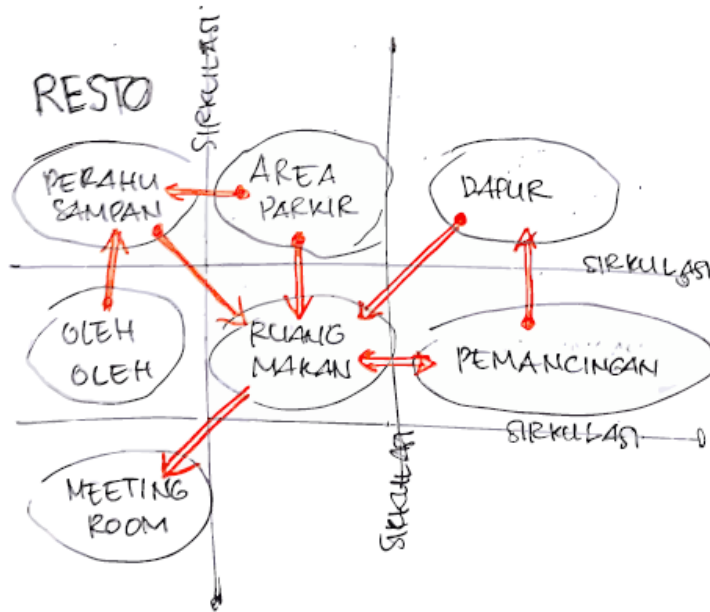 RESTO
SIRKULASI
PERAHU
SAMPAN
AREA
PARKIR
DAPUR
SIRKULASI
OLEH
OLEH
RUANG
MAKAN
PEMANCINGAN
SIRKULASI
SIRKULASI
MEETING
ROOM